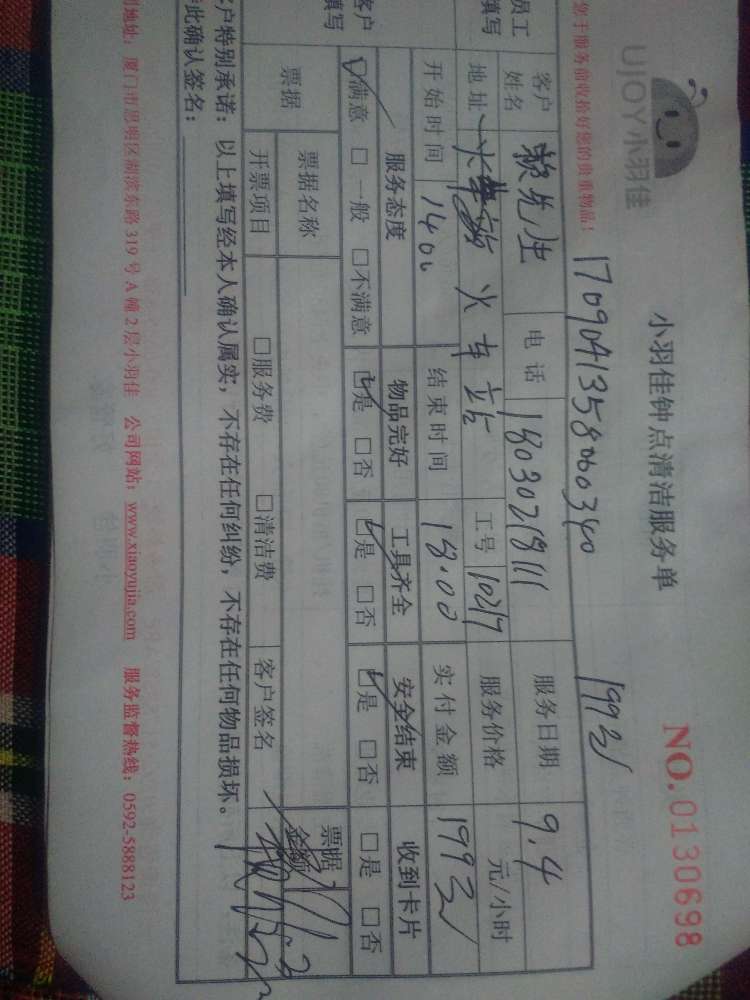 UJOY小羽佳
小羽佳钟点清洁服务单
NO.0130698
您于服务前收拾好您的贵重物品!
1709041358060340 199元
客户姓名 赖先生 电话 18030219111 服务日期 9.4
地址 火车站 工号 10217 服务价格 元/小时
开始时间 14:00 结束时间 18:00 实付金额 199元
服务态度 物品完好 工具齐全 安全结束 收到卡片
☑满意 □一般 □不满意 ☑是 □否 ☑是 □否 ☑是 □否 □是 □否
票据 票据名称 票据金额
开票项目 □服务费 □清洁费 客户签名
客户特别承诺:以上填写经本人确认属实,不存在任何纠纷,不存在任何物品损坏。
此确认签名:
地址:厦门市思明区湖滨东路 319 号 A 幢 2 层小羽佳 公司网站:www.xiaoyujia.com 服务监督热线:0592-5888123